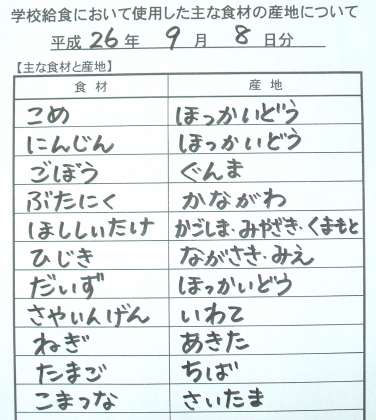 学校給食において使用した主な食材の産地について
平成 26 年 9 月 8 日分
【主な食材と産地】
食材 産地
こめ ほっかいどう
にんじん ほっかいどう
ごぼう ぐんま
ぶたにく かながわ
ほししいたけ かごしま・みやざき・くまもと
ひじき ながさき・みえ
だいず ほっかいどう
さやいんげん いわて
ねぎ あきた
たまご ちば
こまつな さいたま